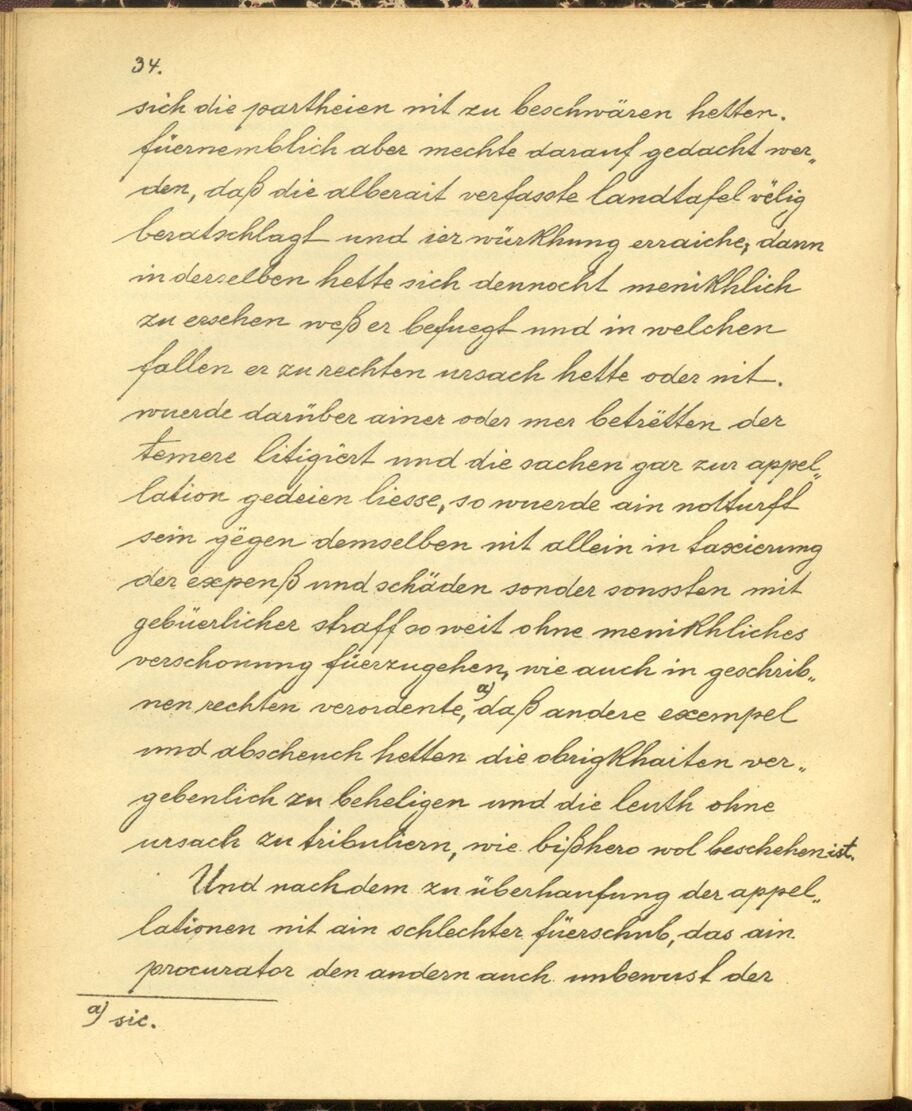 34.
sich die partheien nit zu beschwären hetten.
füernemblich aber mechte darauf gedacht wer„
den, daß die alberait verfasste landtafel völig
beratschlagt und ier würkhung erraiche; dann
in derselben hette sich dennocht menikhlich
zu ersehen weß er befuegt und in welchen
fallen er zu rechten ursach hette oder nit.
wuerde darüber ainer oder mer betrëtten der
temere litigiert und die sachen gar zur appel„
lation gedeien liesse, so wuerde ain notturft
sein gëgen demselben nit allein in taxierung
der expenß und schäden sonder sonssten mit
gebüerlicher straff so weit ohne menikhliches
verschonung füerzugehen, wie auch in geschrib„
nen rechten verordente, a) daß andere exempel
und abscheuch hetten die obrigkhaiten ver„
gebenlich zu beheligen und die leuth ohne
ursach zu tribuliern, wie bißhero wol beschehen ist.
Und nachdem zu überhaufung der appel„
lationen nit ain schlechter füerschub, das ain
procurator den andern auch unbewust der
a) sic.